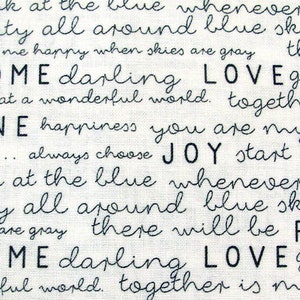 k at the blue whenever
ty all around blue sk
me happy when skies are gray
OME darling LOVE
at a wonderful world. together
NE happiness you are m
... always choose JOY start
at the blue whenever
y all around blue sk
are gray there will be
ME darling LOVE
ful world. together is m